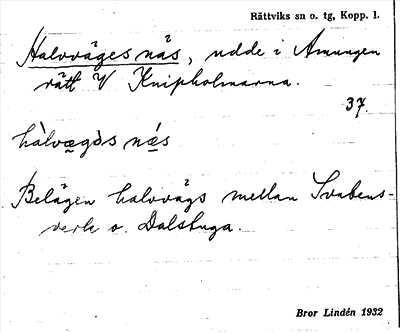 Rättviks sn o. tg, Kopp. l.
Halvväges näs, udde i Amungen
rätt V Knipholmarna.
37.
hàlvægǝs nǽs
Belägen halvvägs mellan Svabens-
verk o. Dalstuga.
Bror Lindén 1932